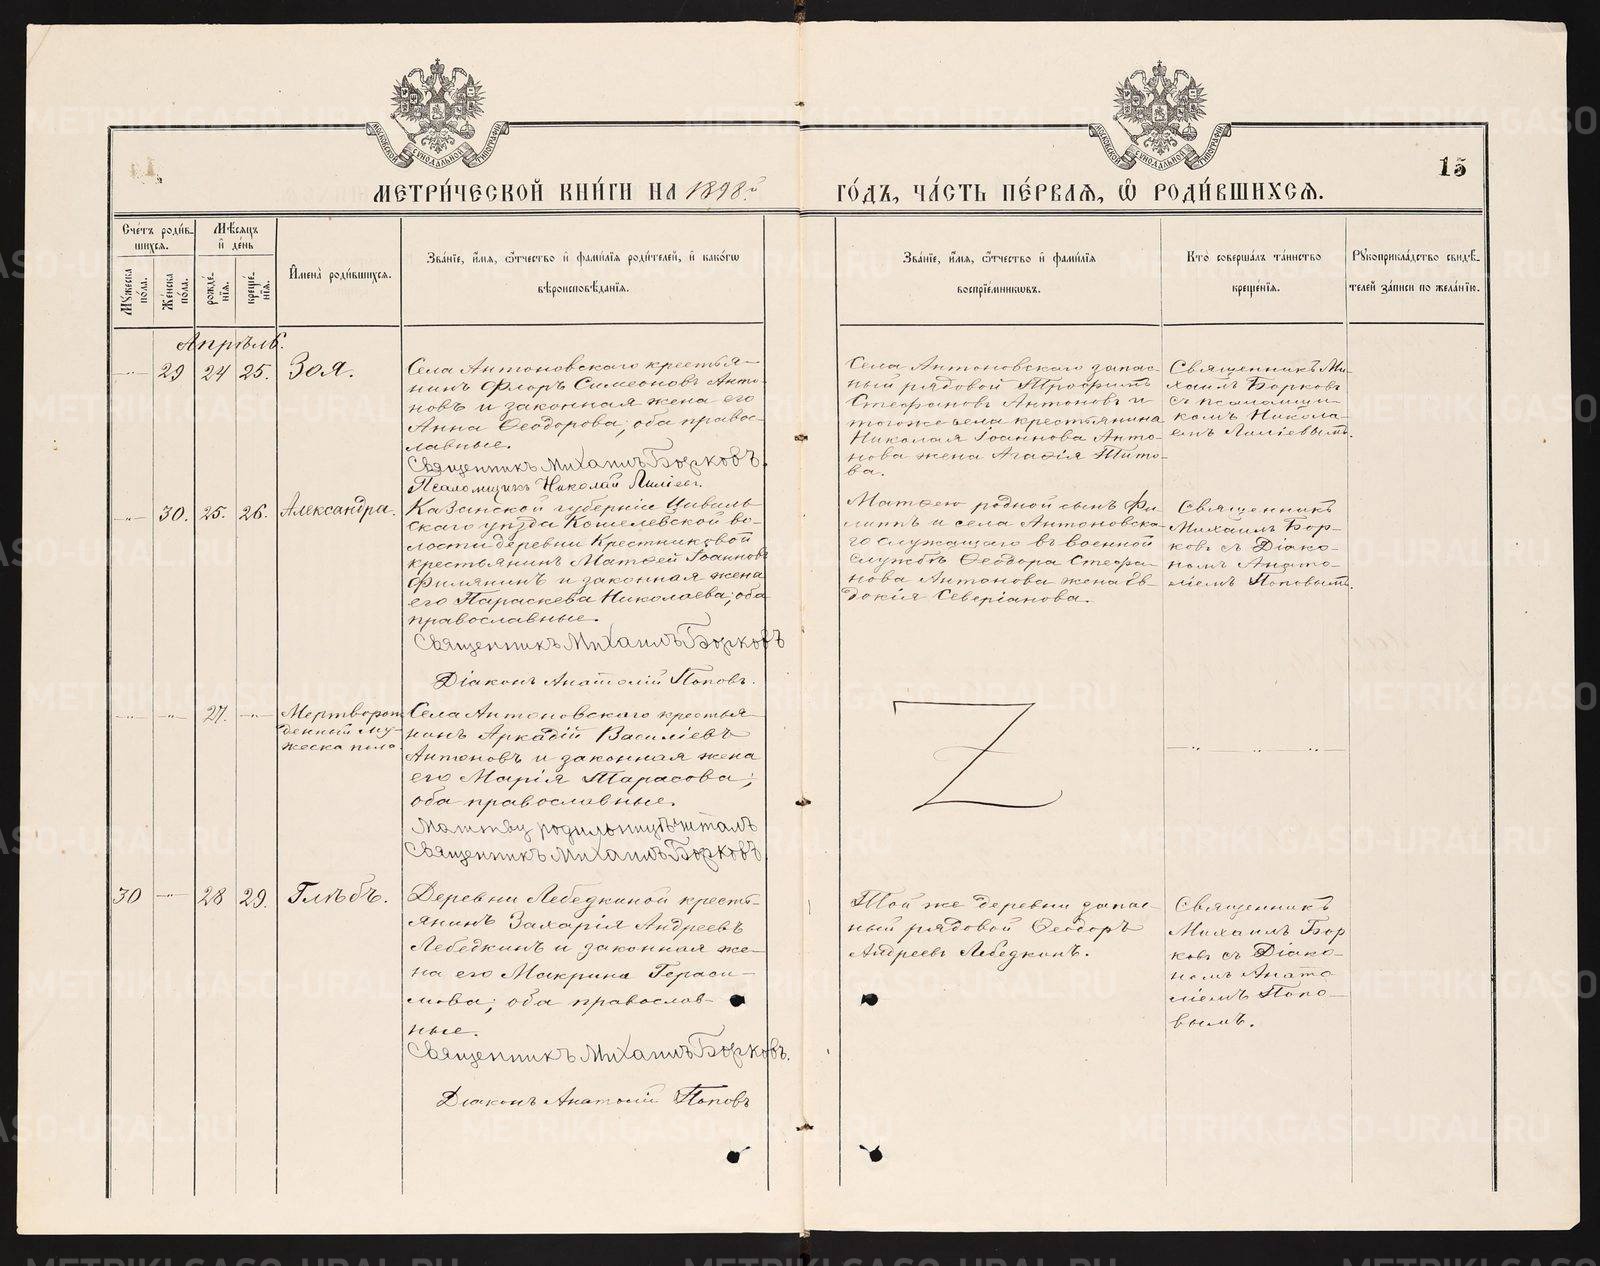 МОСКОВСКОЙ СѴНОДАЛЬНОЙ ТИПОГРАФІИ
МОСКОВСКОЙ СѴНОДАЛЬНОЙ ТИПОГРАФІИ
15
МЕТРИ́ЧЕСКОЙ КНИ́ГИ НА 1898й
ГО́ДЪ, ЧА́СТЬ ПЕ́РВАѦ, Ѽ РОДИ́ВШИХСѦ.
Сче́тъ роди́в-
шихсѧ.
Мѣ́сѧцъ
и де́нь
Мꙋжеска
по́ла.
Же́нска
по́ла.
рожде́-
нїѧ.
креще́-
нїѧ.
Имена̀ роди́вшихсѧ.
Зва́нїе, и́мѧ, ѻ́тчество и фами́лїѧ роди́телей, и како́гѡ
вѣроисповѣ́данїѧ.
Зва́нїе, и́мѧ, ѻ́тчество и фами́лїѧ
воспрїе́мникѡвъ.
Кто̀ соверша́лъ та́инство
креще́нїѧ.
Рꙋкоприкла́дство свидѣ́-
телей за́писи по жела́нїю.
Апрѣль.
—"— 29 24 25. Зоя.
Села Антоновскаго крестья-
нинъ Флоръ Симеоновъ Анто-
новъ и законная жена его
Анна Ѳеодорова; оба право-
славные.
Священникъ Михаилъ Борковъ.
Псаломщикъ Николай Лиліевъ.
Села Антоновскаго запас-
ный рядовой Трофимъ
Стефановъ Антоновъ и
тогоже села крестьянина
Николая Іоаннова Анто-
нова жена Агафія Тито-
ва.
Священникъ Ми-
хаилъ Борковъ
съ псаломщи-
комъ Никола-
емъ Лиліевымъ.
—"— 30. 25. 26. Александра.
Казанской губерніи Цивиль-
скаго уѣзда Кошелевской во-
лости деревни Крестниковой
крестьянинъ Матѳей Іоанновъ
Филянинъ и законная жена
его Параскева Николаева; оба
православные.
Священникъ Михаилъ Борковъ
Діаконъ Анатолій Поповъ.
Матѳею родной сынъ Фи-
липпъ и села Антоновска-
го служащаго въ военной
службѣ Ѳеодора Стефа-
нова Антонова жена Ев-
докія Северіанова.
Священникъ
Михаилъ Бор-
ковъ съ Діако-
номъ Анато-
ліемъ Поповымъ.
—"— —"— 27. —"— Мертворож-
денный му-
жеска пола
Села Антоновскаго крестья-
нинъ Аркадій Василіевъ
Антоновъ и законная жена
его Марія Тарасова;
оба православные.
Молитву родильницѣ читалъ
Священникъ Михаилъ Борковъ.
Z
—"— —"— —"—
30 —"— 28 29. Глѣбъ.
Деревни Лебедкиной кресть-
янинъ Захарія Андреевъ
Лебедкинъ и законная же-
на его Макрина Гераси-
мова; оба православ-
ные.
Священникъ Михаилъ Борковъ.
Діаконъ Анатолій Поповъ
Той же деревни запас-
ный рядовой Ѳеодоръ
Андреевъ Лебедкинъ.
Священникъ
Михаилъ Бор
ковъ съ Діако-
номъ Анато
ліемъ Попо-
вымъ.
METRIKI.GASO-URAL.RU